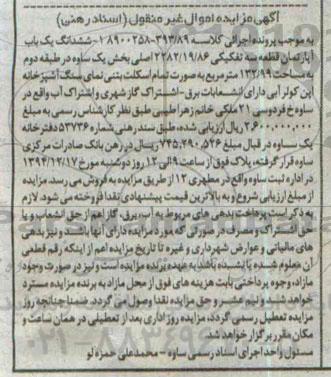 آگهی مزایده اموال غیر منقول (اسناد رهنی)
به موجب پرونده اجرائی کلاسه ۳۹۳/۸۹-۸۹۰۰۲۵۸ ۱-ششدانگ یک باب
آپارتمان قطعه سه تفکیکی ۲۲۸۲/۱۹/۸۶ اصلی بخش یک ساوه در طبقه دوم
به مساحت ۱۳۲/۹۹ مترمربع به صورت تمام اسکلت بتنی نمای سنگ آشپزخانه
اپن کولر آبی دارای انشعابات برق-اشتراک گاز شهری و اشتراک آب واقع در
ساوه خ فردوسی ۲۱ ملکی خانم زهرا طیبی طبق نظر کارشناس رسمی به مبلغ
۲,۶۰۰,۰۰۰,۰۰۰ ریال ارزیابی شده، طبق سند رهنی شماره ۵۳۷۳۶ دفترخانه
یک ساوه در قبال مبلغ ۷۴۵,۲۹۰,۵۲۶ ریال در رهن بانک صادرات مرکزی
ساوه قرار گرفته، پلاک فوق از ساعت ۹ الی ۱۲ روز دوشنبه مورخ ۱۳۹۴/۱۲/۱۷
در اداره ثبت ساوه واقع در مطهری ۱۲ از طریق مزایده به فروش می رسد. مزایده
از مبلغ ارزیابی شروع و به بالاترین قیمت پیشنهادی نقدا فروخته می شود. لازم
به ذکر است پرداخت بدهی های مربوط به آب، برق، گاز اعم از حق انشعاب و یا
حق اشتراک و مصرف در صورتی که مورد مزایده دارای آنها باشد و نیز بدهی
های مالیاتی و عوارض شهرداری و غیره تا تاریخ مزایده اعم از اینکه رقم قطعی
آن معلوم شده یا نشده باشد به عهده برنده مزایده است و نیز در صورت وجود
مازاد، وجوه پرداختی بابت هزینه های فوق از محل مازاد به برنده مزایده مسترد
خواهد شد و نیم عشر و حق مزایده نقدا وصول می گردد. ضمنا چنانچه روز
مزایده تعطیل رسمی گردد، مزایده روز اداری بعد از تعطیلی در همان ساعت و
مکان مقرر برگزار خواهد شد.
مسئول واحد اجرای اسناد رسمی ساوه - محمدعلی حمزه لو
۰۲۱-۸۸۳۴۹۶